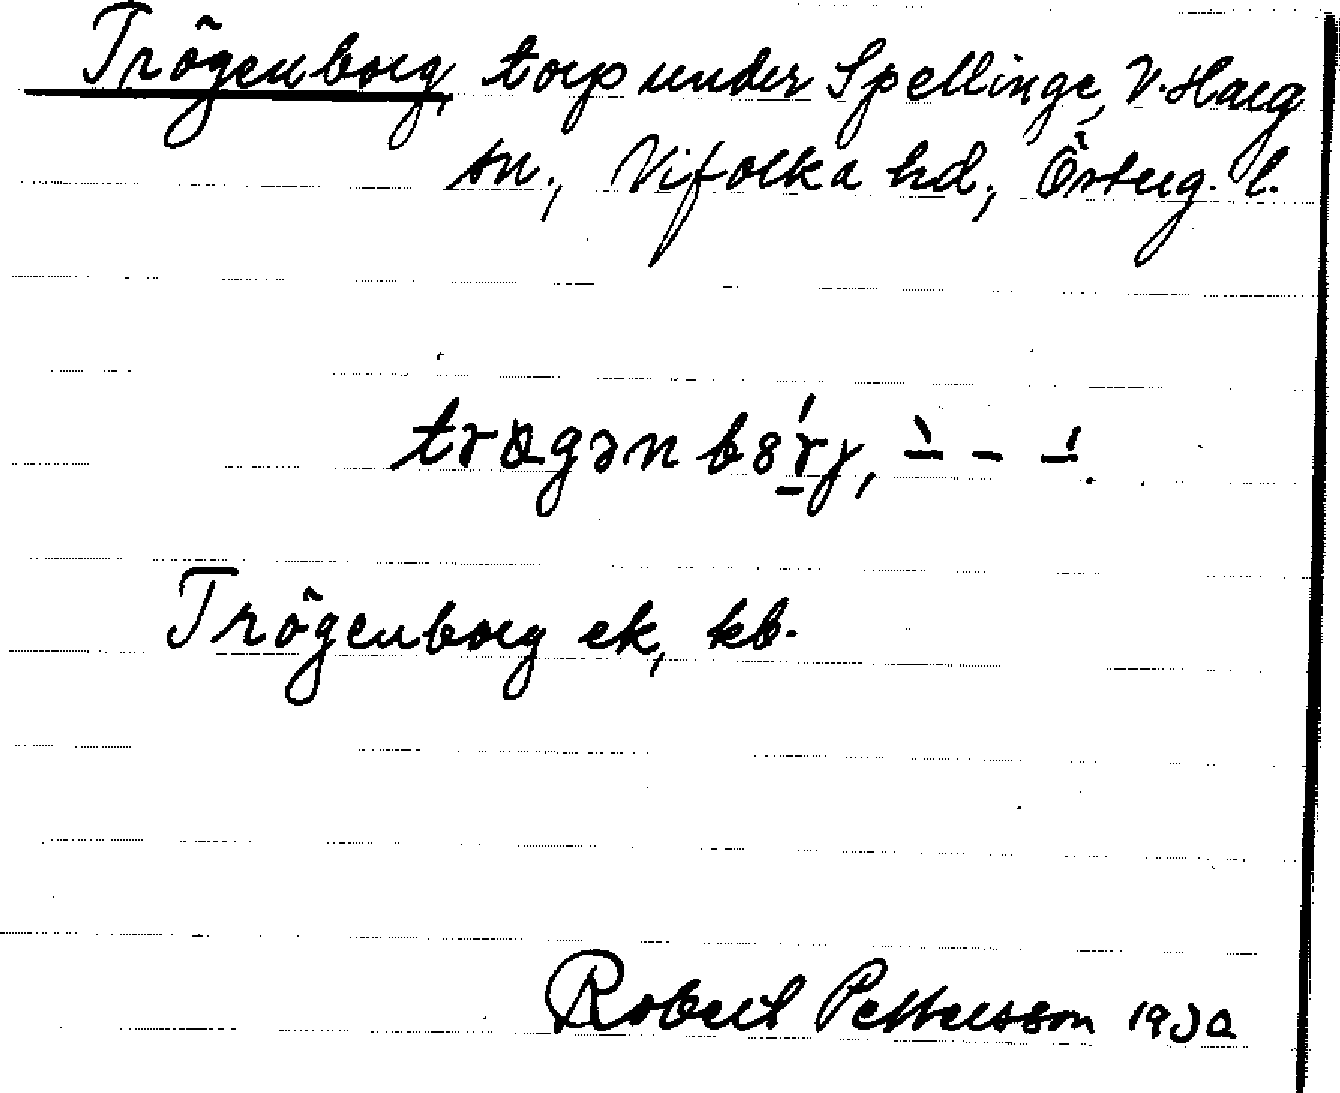 Trögenborg, torp under Spellinge, V. Harg
sn., Vifolka hd, Österg. l.
trøgən bȣrj, ˋ – ˊ.
Trögenborg ek, kb.
Robert Pettersson 1930